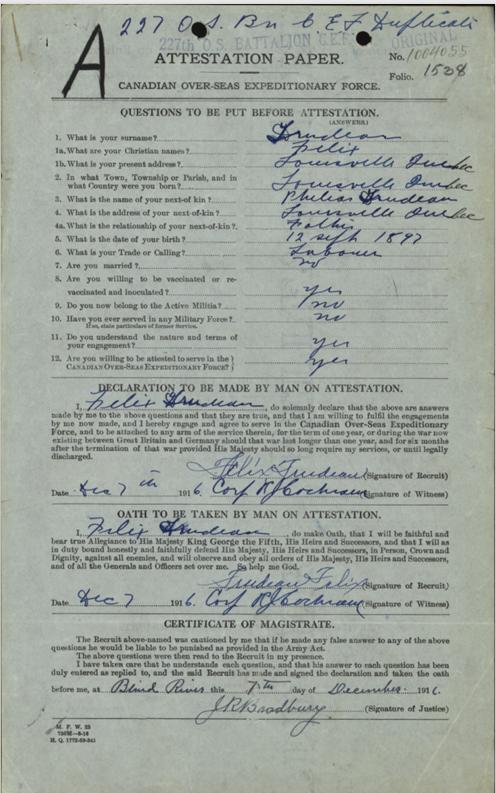 227 O.S. Bn C E F Duplicate
227th O.S. BATTALION C.E.F. ORIGINAL
A
ATTESTATION PAPER.
No. 1004055
Folio. 1528
CANADIAN OVER-SEAS EXPEDITIONARY FORCE.
QUESTIONS TO BE PUT BEFORE ATTESTATION.
(ANSWERS)
1. What is your surname? Trudeau
1a. What are your Christian names? Felix
1b. What is your present address? Louisville Quebec
2. In what Town, Township or Parish, and in
what Country were you born? Louisville Quebec
3. What is the name of your next-of kin? Trudeau
4. What is the address of your next-of-kin? Louisville Quebec
4a. What is the relationship of your next-of-kin? Father
5. What is the date of your birth? 12 sept 1897
6. What is your Trade or Calling? Labourer
7. Are you married? no
8. Are you willing to be vaccinated or re-
vaccinated and inoculated? yes
9. Do you now belong to the Active Militia? no
10. Have you ever served in any Military Force? no
If so, state particulars of former Service.
11. Do you understand the nature and terms of
your engagement? yes
12. Are you willing to be attested to serve in the
CANADIAN OVER-SEAS EXPEDITIONARY FORCE? yes
DECLARATION TO BE MADE BY MAN ON ATTESTATION.
I, Felix Trudeau, do solemnly declare that the above are answers
made by me to the above questions and that they are true, and that I am willing to fulfil the engagements
by me now made, and I hereby engage and agree to serve in the Canadian Over-Seas Expeditionary
Force, and to be attached to any arm of the service therein, for the term of one year, or during the war now
existing between Great Britain and Germany should that war last longer than one year, and for six months
after the termination of that war provided His Majesty should so long require my services, or until legally
discharged.
Felix Trudeau (Signature of Recruit)
Date Dec 7th 1916. Corp Cochrane (Signature of Witness)
OATH TO BE TAKEN BY MAN ON ATTESTATION.
I, Felix Trudeau, do make Oath, that I will be faithful and
bear true Allegiance to His Majesty King George the Fifth, His Heirs and Successors, and that I will as
in duty bound honestly and faithfully defend His Majesty, His Heirs and Successors, in Person, Crown and
Dignity, against all enemies, and will observe and obey all orders of His Majesty, His Heirs and Successors,
and of all the Generals and Officers set over me. So help me God.
Trudeau Felix (Signature of Recruit)
Date Dec 7 1916. Corp Cochrane (Signature of Witness)
CERTIFICATE OF MAGISTRATE.
The Recruit above-named was cautioned by me that if he made any false answer to any of the above
questions he would be liable to be punished as provided in the Army Act.
The above questions were then read to the Recruit in my presence.
I have taken care that he understands each question, and that his answer to each question has been
duly entered as replied to, and the said Recruit has made and signed the declaration and taken the oath
before me, at Blind River this 7th day of December 1916.
J.R. Bradbury (Signature of Justice)
M. F. W. 23
H. Q. 1772-39-241